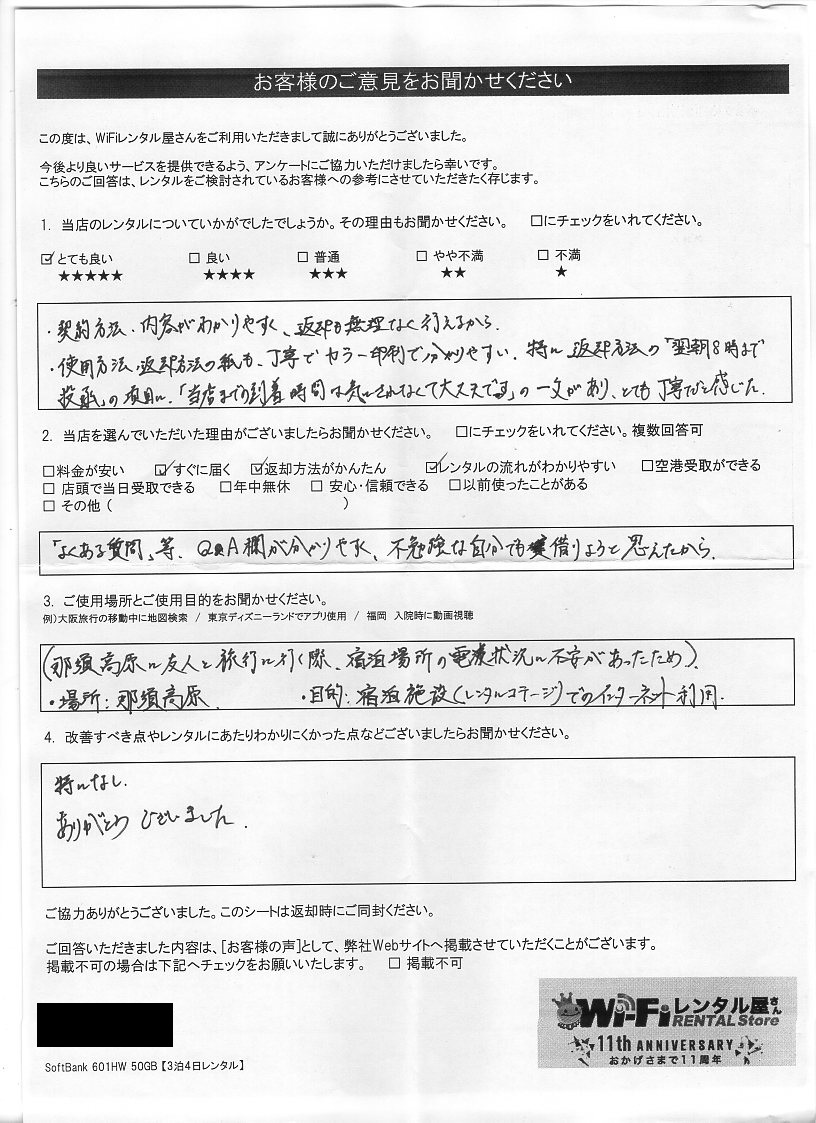 お客様のご意見をお聞かせください
この度は、WiFiレンタル屋さんをご利用いただきまして誠にありがとうございました。
今後より良いサービスを提供できるよう、アンケートにご協力いただけましたら幸いです。
こちらのご回答は、レンタルをご検討されているお客様への参考にさせていただきたく存じます。
1. 当店のレンタルについていかがでしたでしょうか。その理由もお聞かせください。 □にチェックをいれてください。
☑ とても良い □ 良い □ 普通 □ やや不満 □ 不満
★★★★★ ★★★★ ★★★ ★★ ★
・契約方法、内容がわかりやすく、返却も無理なく行えるから。
・使用方法、返却方法の紙も、丁寧でカラー印刷で分かりやすい。特に返却方法の「翌朝8時まで
投函」の項目に、「当店までの到着時間は気にされなくて大丈夫です」の一文があり、とても丁寧だと感じた。
2. 当店を選んでいただいた理由がございましたらお聞かせください。 □にチェックをいれてください。複数回答可
□料金が安い ☑すぐに届く ☑返却方法がかんたん ☑レンタルの流れがわかりやすい □空港受取ができる
□ 店頭で当日受取できる □年中無休 □ 安心・信頼できる □以前使ったことがある
□ その他 ( )
「よくある質問」等、Q&A欄が分かりやすく、不勉強な自分でも借りようと思えたから。
3. ご使用場所とご使用目的をお聞かせください。
例)大阪旅行の移動中に地図検索 / 東京ディズニーランドでアプリ使用 / 福岡 入院時に動画視聴
(那須高原に友人と旅行に行く際、宿泊場所の電波状況に不安があったため)。
・場所:那須高原 ・目的:宿泊施設(レンタルコテージ)でのインターネット利用。
4. 改善すべき点やレンタルにあたりわかりにくかった点などございましたらお聞かせください。
特になし。
ありがとうございました。
ご協力ありがとうございました。このシートは返却時にご同封ください。
ご回答いただきました内容は、[お客様の声]として、弊社Webサイトへ掲載させていただくことがございます。
掲載不可の場合は下記へチェックをお願いいたします。 □ 掲載不可
Wi-Fiレンタル屋さん
RENTAL Store
11th ANNIVERSARY
おかげさまで11周年
SoftBank 601HW 50GB【3泊4日レンタル】